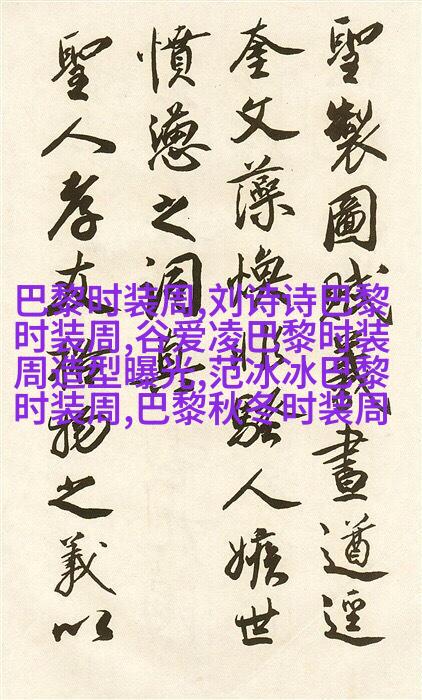 聖製圖畫遒逕
奎文藻煥騷人嫉世
憤懣之詞
聖人孝友物之義以
巴黎时装周,刘诗诗巴黎
时装周,谷爱凌巴黎时装
周造型曝光,范冰冰巴黎
时装周,巴黎秋冬时装周